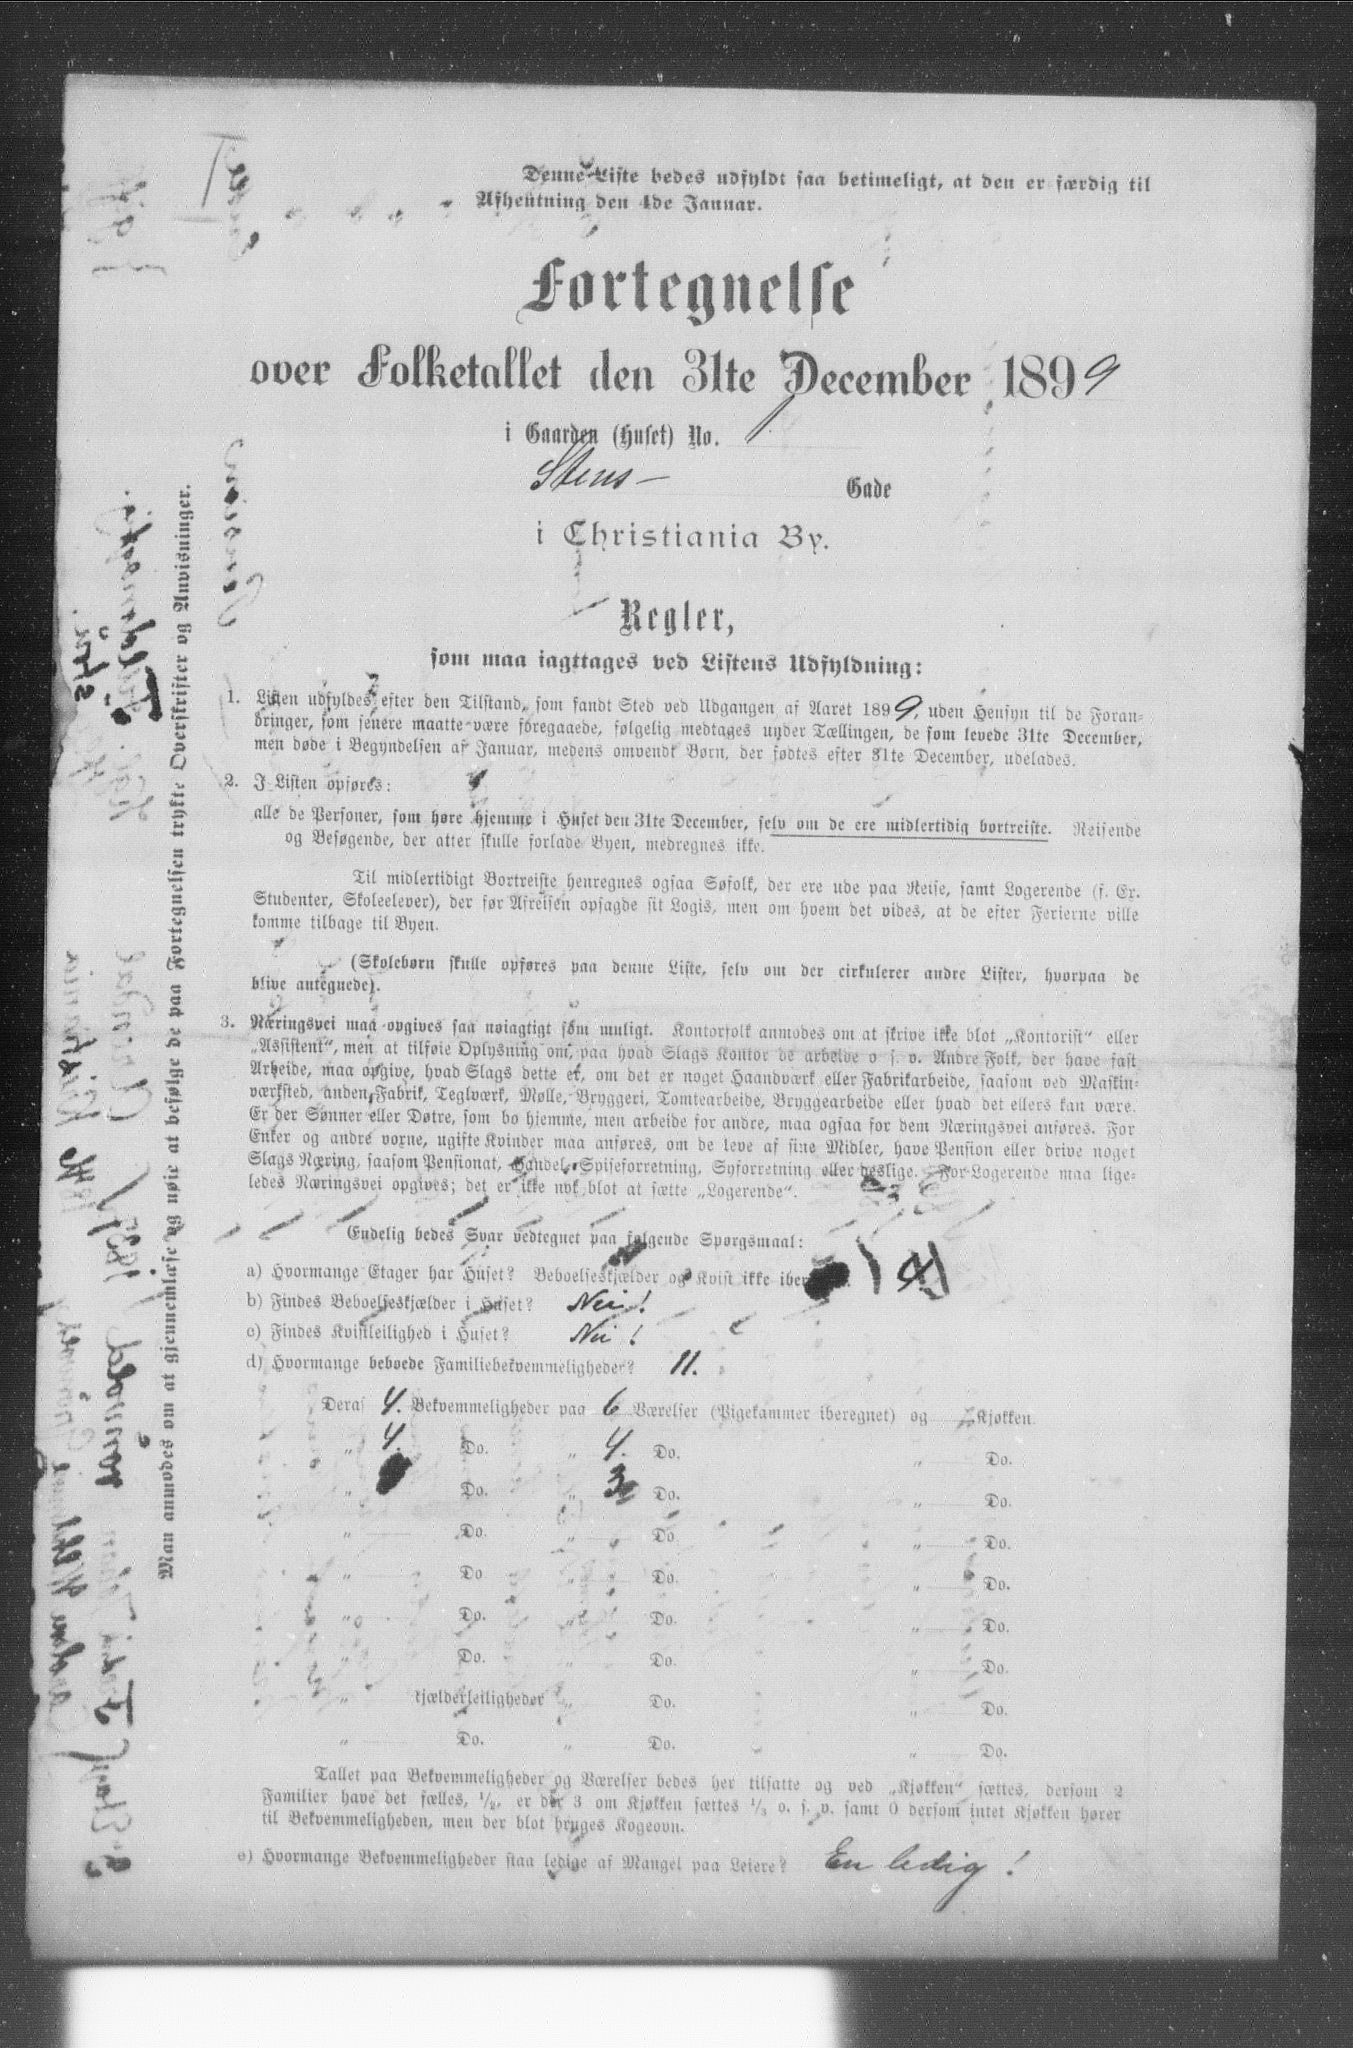 Denne Liste bedes udfyldt saa betimeligt, at den er færdig til
Afhentning den 4de Januar.
Fortegnelse
over Folketallet den 31te December 1899
i Gaarden (Huset) No. 1
Stens- Gade
i Christiania By.
Regler,
som maa iagttages ved Listens Udfyldning:
1. Listen udfyldes efter den Tilstand, som fandt Sted ved Udgangen af Aaret 1899, uden Hensyn til de Foran-
dringer, som senere maatte være foregaaede, følgelig medtages under Tællingen, de som levede 31te December,
men døde i Begyndelsen af Januar, medens omvendt Børn, der fødtes efter 31te December, udelades.
2. I Listen opføres:
alle de Personer, som høre hjemme i Huset den 31te December, selv om de ere midlertidig bortreiste. Reisende
og Besøgende, der atter skulle forlade Byen, medregnes ikke.
Til midlertidigt Bortreiste henregnes ogsaa Søfolk, der ere ude paa Reise, samt Logerende (f. Ex.
Studenter, Skoleelever), der før Afreisen opsagde sit Logis, men om hvem det vides, at de efter Ferierne ville
komme tilbage til Byen.
(Skolebørn skulle opføres paa denne Liste, selv om der cirkulerer andre Lister, hvorpaa de
blive antegnede).
3. Næringsvei maa opgives saa nøiagtigt som muligt. Kontorfolk anmodes om at skrive ikke blot „Kontorist“ eller
„Assistent“, men at tilføie Oplysning om, paa hvad Slags Kontor de arbeide o. s. v. Andre Folk, der have fast
Arbeide, maa opgive, hvad Slags dette er, om det er noget Haandværk eller Fabrikarbeide, saasom ved Maskin-
værksted, anden Fabrik, Teglværk, Mølle, Bryggeri, Tomtearbeide, Bryggearbeide eller hvad det ellers kan være.
Er der Sønner eller Døtre, som bo hjemme, men arbeide for andre, maa ogsaa for dem Næringsvei anføres. For
Enker og andre voxne, ugifte Kvinder maa anføres, om de leve af sine Midler, have Pension eller drive noget
Slags Næring, saasom Pensionat, Handel, Spiseforretning, Syforretning eller deslige. For Logerende maa lige-
ledes Næringsvei opgives; det er ikke nok blot at sætte „Logerende“.
Endelig bedes Svar vedtegnet paa følgende Spørgsmaal:
a) Hvormange Etager har Huset? Beboelseskjælder og Kvist ikke iber (4)
b) Findes Beboelseskjælder i Huset? Nei!
c) Findes Kvistleilighed i Huset? Nei!
d) Hvormange beboede Familiebekvemmeligheder? 11.
Deraf 4. Bekvemmeligheder paa 6 Værelser (Pigekammer iberegnet) og Kjøkken.
„ 4. Do. „ 4. Do. „ Do.
„ Do. „ 3 Do. „ Do.
„ Do. „ Do. „ Do.
„ Do. „ Do. „ Do.
„ Do. „ Do. „ Do.
„ Do. „ Do. „ Do.
„ kjælderleiligheder „ Do. „ Do.
„ Do. „ Do. „ Do.
Tallet paa Bekvemmeligheder og Værelser bedes her tilsatte og ved „Kjøkken“ sættes, dersom 2
Familier have det fælles, 1/2, er der 3 om Kjøkken sættes 1/3 o. s. v. samt 0 dersom intet Kjøkken hører
til Bekvemmeligheden, men der blot bruges Kogeovn.
e) Hvormange Bekvemmeligheder staa ledige af Mangel paa Leiere? En ledig!
Man anmodes om at gjennemlæse og nøie at befølge de paa Fortegnelsen trykte Overskrifter og Anvisninger.